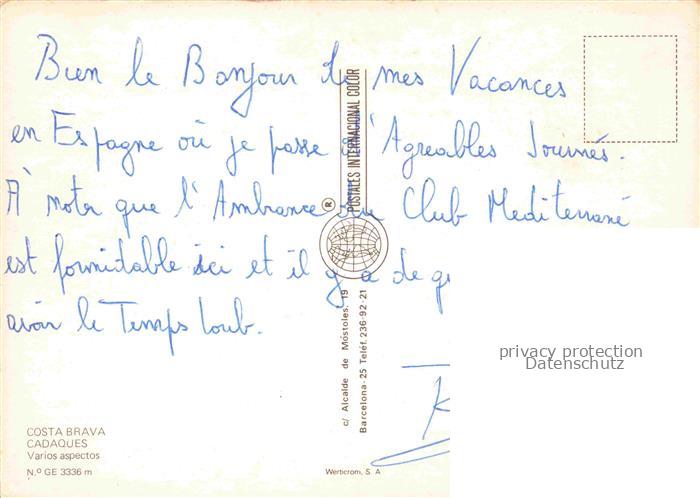 Bien le Bonjour de mes Vacances
en Espagne où je passe d'Agreables Journés.
A noter que l'Ambiance du Club Mediterrané
est formidable ici et il y a de
avoir le Temps
POSTALES INTERNACIONAL COLOR
®
c/ Alcalde de Móstoles, 19
Barcelona-25 Teléf. 236-92-21
privacy protection
Datenschutz
COSTA BRAVA
CADAQUES
Varios aspectos
N.º GE 3336 m
Werticrom, S. A